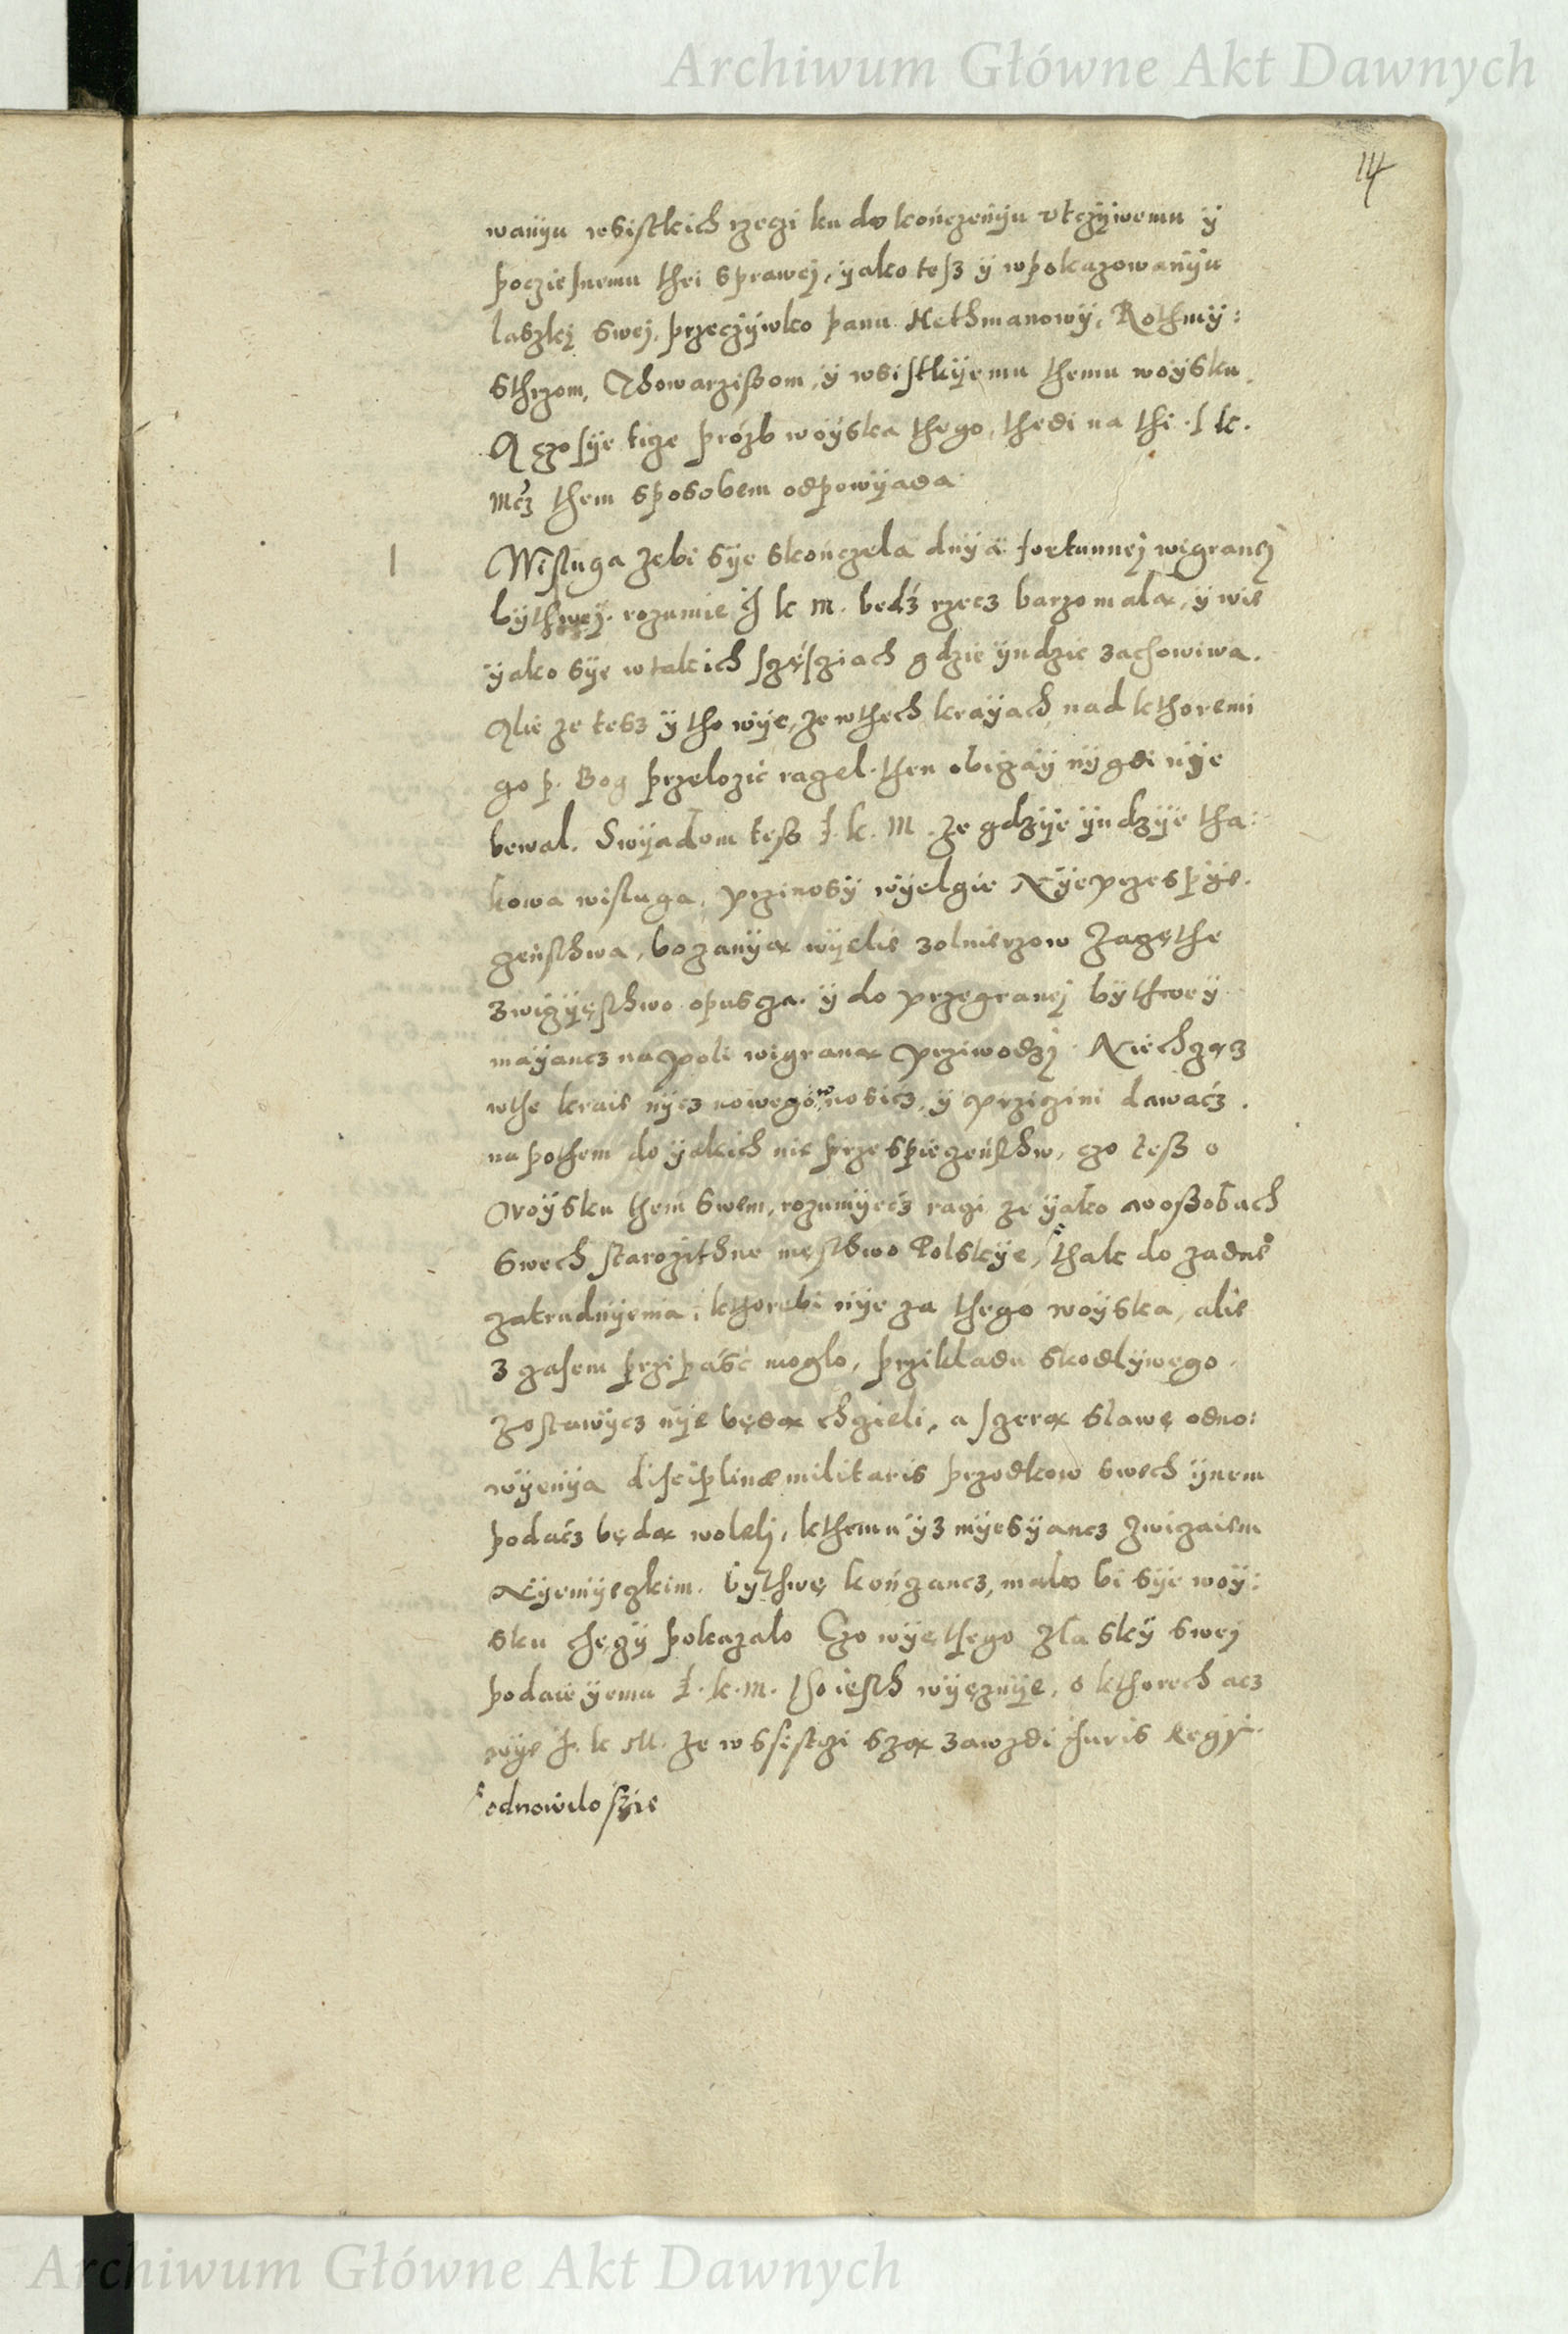 Archiwum Główne Akt Dawnych
14
wanÿu wsistkich rzeczi ku dokończenÿu utczÿwemu ÿ
pocziesnemu thei sprawej, ÿako tesz ÿ wpokazowanÿu
laszkj swej, przeczÿwko panu Hethmanowÿ, Rothmÿ:
sthrzom, Thowarzißom, ÿ wsistkÿemu themu woÿsku.
A czo sÿe ticze prózb woÿska thego, thedi na thi I k.
mcz them sposobem odpowÿada
1
Wisluga zebi sÿe skończela dnÿa fortunnej wigranej
bÿthwej. rozumie J k m. bedz rzecz barzo mala, ÿ wie
ÿako sÿe wtakich sczęscziach gdzie ÿndzie zachowiwa.
Alie ze tesz ÿ tho wÿe, ze wthech kraÿach nad kthoremi
go p. Bog przelozic raczel. then obiczaÿ nÿgdi nÿe
bewal. Swÿadom teß J. k. M. ze gdzÿe ÿndzÿe tha:
kowa wisluga, przinosÿ wÿelgie Nÿeprzespÿe.
czeństhwa, bo zanÿa wÿelie zolnierzow Zaczęthe
zwiczÿęsthwo opuscza. ÿ do przegranej bÿthwey
maÿancz napoli wigrana prziwodzj. Niechcząc
wthe kraie nÿcz nowego wnosicz, ÿ prziczini dawacz.
na pothem do ÿakich nie przespieczeństhw, czo teß o
woÿsku them swem, rozumÿecz raczi ze ÿako woßobach
swech starozithne męsthwo Polskÿe, thak do zadne
zatrudnÿenia, kthorebi nÿe za thego woÿska, alie
z czasem przipaść moglo, przikladu skodlÿwego.
zostawÿcz nÿe będa chczieli, a sczera slawę odno:
wÿenÿa disciplinæ militaris przodkow swech ÿnem
podacz będa wolelj, kthemu ÿz mÿesÿancz zwiczaiem
Nÿemÿeczkim. bÿthwę kończancz, malo bi sÿe woÿ:
sku chęczÿ pokazalo Czo wÿęthego zla skÿ swej
podaie ÿemu J. k. m. tho iesth wÿęznÿe, o kthorech acz
wÿe J. k M. ze wsistczi sza zawzdi Juris Regÿ.
odnowilo szÿe
Archiwum Główne Akt Dawnych